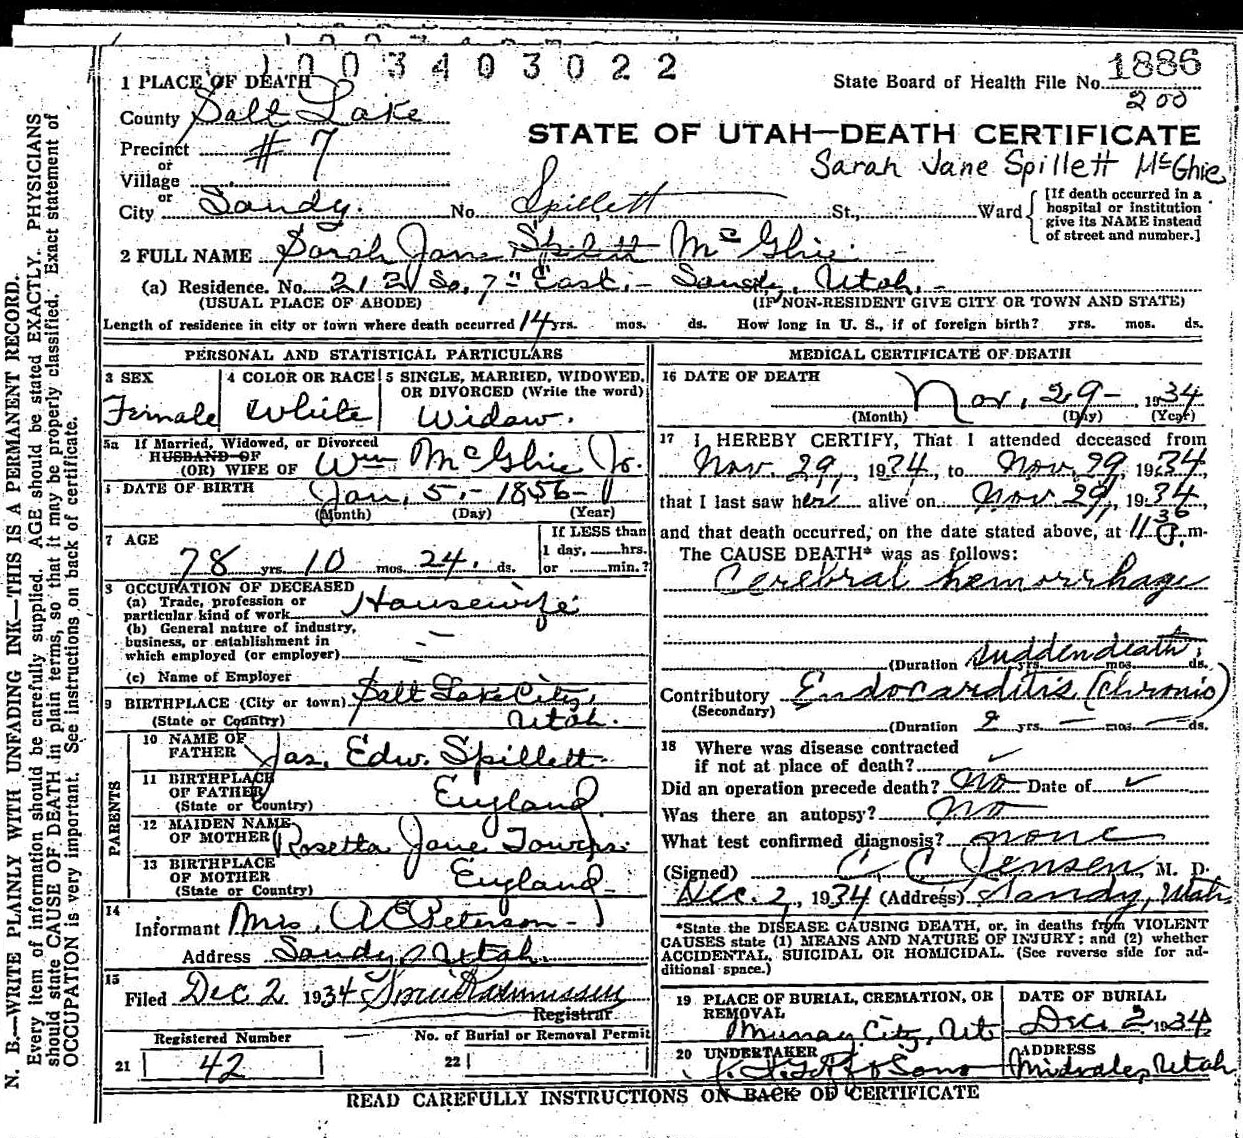 1003403022
1 PLACE OF DEATH
State Board of Health File No. 1886
200
County Salt Lake
STATE OF UTAH—DEATH CERTIFICATE
Precinct # 7
or
Village
Sarah Jane Spillett McGhie
or
City Sandy. No. Spillett St., Ward
[If death occurred in a
hospital or institution
give its NAME instead
of street and number.]
2 FULL NAME Sarah Jane Spillett McGhie.
(a) Residence. No. 212 So. 7" East. - Sandy, Utah. -
(USUAL PLACE OF ABODE) (IF NON-RESIDENT GIVE CITY OR TOWN AND STATE)
Length of residence in city or town where death occurred 14 yrs. mos. ds. How long in U. S., if of foreign birth? yrs. mos. ds.
PERSONAL AND STATISTICAL PARTICULARS
3 SEX
Female
4 COLOR OR RACE
White
5 SINGLE, MARRIED, WIDOWED,
OR DIVORCED (Write the word)
Widow.
5a If Married, Widowed, or Divorced
HUSBAND OF
(OR) WIFE OF Wm McGhie Jr.
DATE OF BIRTH Jan. 5, - 1856 -
(Month) (Day) (Year)
7 AGE
78 yrs. 10 mos. 24. ds.
If LESS than
1 day, hrs.
or min.?
8 OCCUPATION OF DECEASED
(a) Trade, profession or
particular kind of work Housewife
(b) General nature of industry,
business, or establishment in
which employed (or employer)
(c) Name of Employer
9 BIRTHPLACE (City or town) Salt Lake City,
(State or Country) Utah.
PARENTS
10 NAME OF
FATHER Jas. Edw. Spillett
11 BIRTHPLACE
OF FATHER
(State or Country) England
12 MAIDEN NAME
OF MOTHER Rosetta Jane Towers.
13 BIRTHPLACE
OF MOTHER
(State or Country) England
14
Informant Mrs. A C Peterson -
Address Sandy, Utah.
15
Filed Dec 2 1934 Rasmussen
Registrar
Registered Number
No. of Burial or Removal Permit
21 42
22
MEDICAL CERTIFICATE OF DEATH
16 DATE OF DEATH
Nov. 29 - 1934
(Month) (Day) (Year)
17 I HEREBY CERTIFY, That I attended deceased from
Nov. 29, 1934, to Nov. 29, 1934,
that I last saw her alive on Nov 29, 1934,
and that death occurred, on the date stated above, at 11 30 P.m.
The CAUSE DEATH* was as follows:
Cerebral hemorrhage
(Duration sudden death, yrs. mos. ds.
Contributory Endocarditis (chronic)
(Secondary)
(Duration 2 yrs. — mos. — ds.
18 Where was disease contracted
if not at place of death? ✓
Did an operation precede death? No Date of ✓
Was there an autopsy? no
What test confirmed diagnosis? none
(Signed) C. C. Jensen, M. D.
Dec. 2, 1934 (Address) Sandy, Utah.
*State the DISEASE CAUSING DEATH, or, in deaths from VIOLENT
CAUSES state (1) MEANS AND NATURE OF INJURY; and (2) whether
ACCIDENTAL, SUICIDAL OR HOMICIDAL. (See reverse side for ad-
ditional space.)
19 PLACE OF BURIAL, CREMATION, OR
REMOVAL
Murray City, Ut
DATE OF BURIAL
Dec. 2 1934
20 UNDERTAKER
& Sons
ADDRESS
Midvale, Utah
READ CAREFULLY INSTRUCTIONS ON BACK OF CERTIFICATE
N. B.—WRITE PLAINLY WITH UNFADING INK—THIS IS A PERMANENT RECORD.
Every item of information should be carefully supplied. AGE should be stated EXACTLY. PHYSICIANS
should state CAUSE OF DEATH in plain terms, so that it may be properly classified. Exact statement of
OCCUPATION is very important. See instructions on back of certificate.